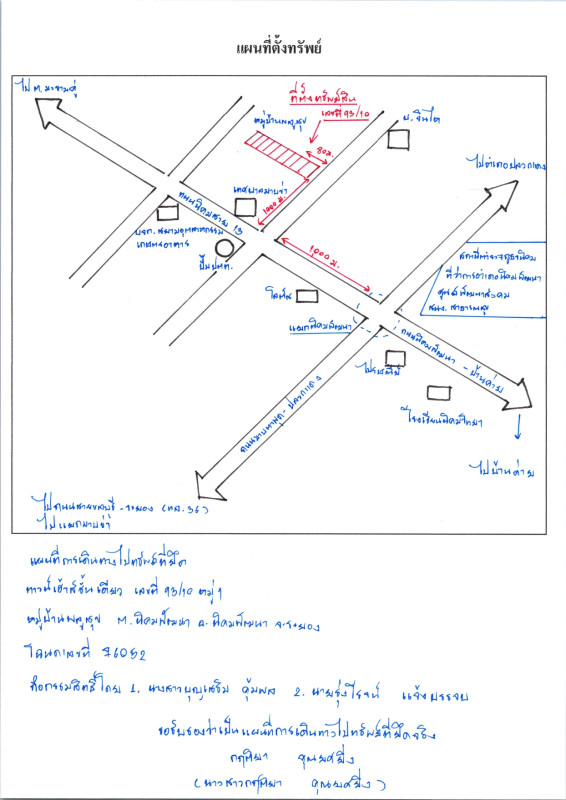 แผนที่ตั้งทรัพย์
ไป ต.มะขามคู่
ที่ตั้งทรัพย์สิน
เลขที่ 93/10
หมู่บ้านพลูสุข
80ม.
บ.จินโต
ไปอำเภอปลวกแดง
เทศบาลมาบข่า
1000 ม.
ถนนนิคมสาย 13
บจก. สยามอุตสาหกรรม
เกษตรอาหาร
ปั๊ม ปตท.
1000 ม.
สถานีตำรวจภูธรนิคม
ที่ว่าการอำเภอนิคมพัฒนา
ศูนย์พัฒนาสังคม
สนง. สาธารณสุข
โลตัส
แยกนิคมพัฒนา
ถนนนิคมพัฒนา - บ้านค่าย
ไปรษณีย์
โรงเรียนนิคมวิทยา
ถนนมาบตาพุด - ปลวกแดง
ไปบ้านค่าย
ไปถนนสายชลบุรี - ระยอง (ทล. 36)
ไปแยกมาบข่า
แผนที่การเดินทางไปทรัพย์ที่ยึด
ทาวน์เฮ้าส์ชั้นเดียว เลขที่ 93/10 หมู่ 1
หมู่บ้านพลูสุข ต.นิคมพัฒนา อ.นิคมพัฒนา จ.ระยอง
โฉนดเลขที่ 76052
ถือกรรมสิทธิ์โดย 1. นางสาวบุญเสริม คุ้มพล 2. นายรุ่งโรจน์ แจ้งบรรจบ
ขอรับรองว่าเป็นแผนที่การเดินทางไปทรัพย์ที่ยึดจริง